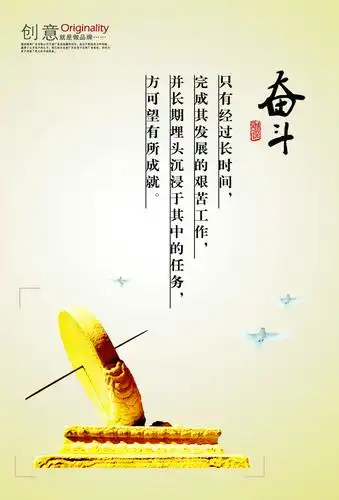 创意
Originality
就是做品牌……
奋斗
只有经过长时间，
完成其发展的艰苦工作，
并长期埋头沉浸于其中的任务，
方可望有所成就。